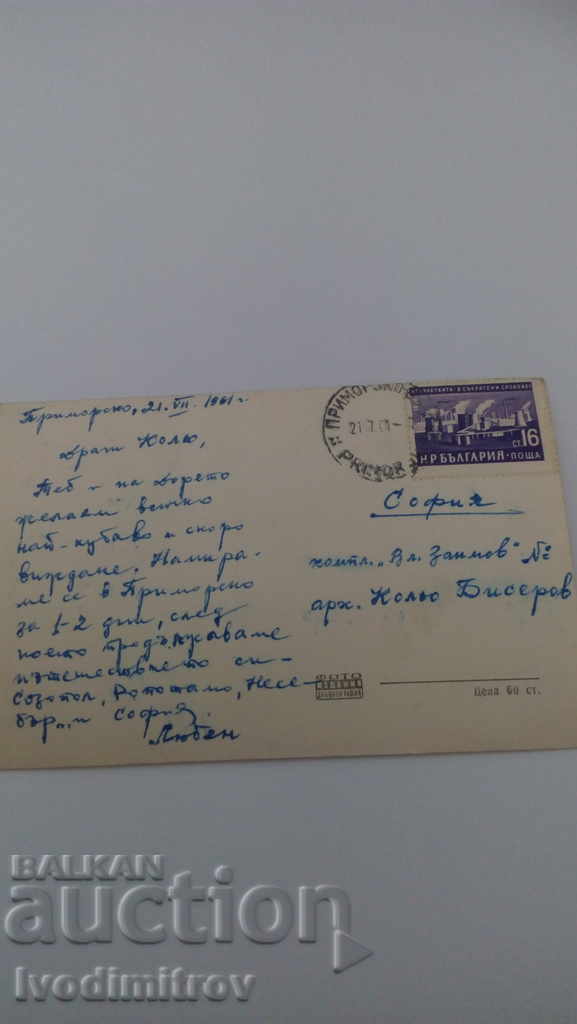 Приморско, 21. VII. 1961 г.
Драги Кольо,
Теб и на Дорето
желаем всичко
най-хубаво и скоро
виждане. Намира-
ме се в Приморско
за 1-2 дни, след
което продължаваме
пътешествието си -
Созопол, Ропотамо, Несе-
бър.. и София
Любен
ПРИМОРСКО
21.7.61
НР БЪЛГАРИЯ
ПОЩА
СТ. 16
София
компл. „Вл. Заимов" №
арх. Кольо Бисеров
ФОТО
Цена 60 ст.
BALKAN
auction
Ivodimitrov